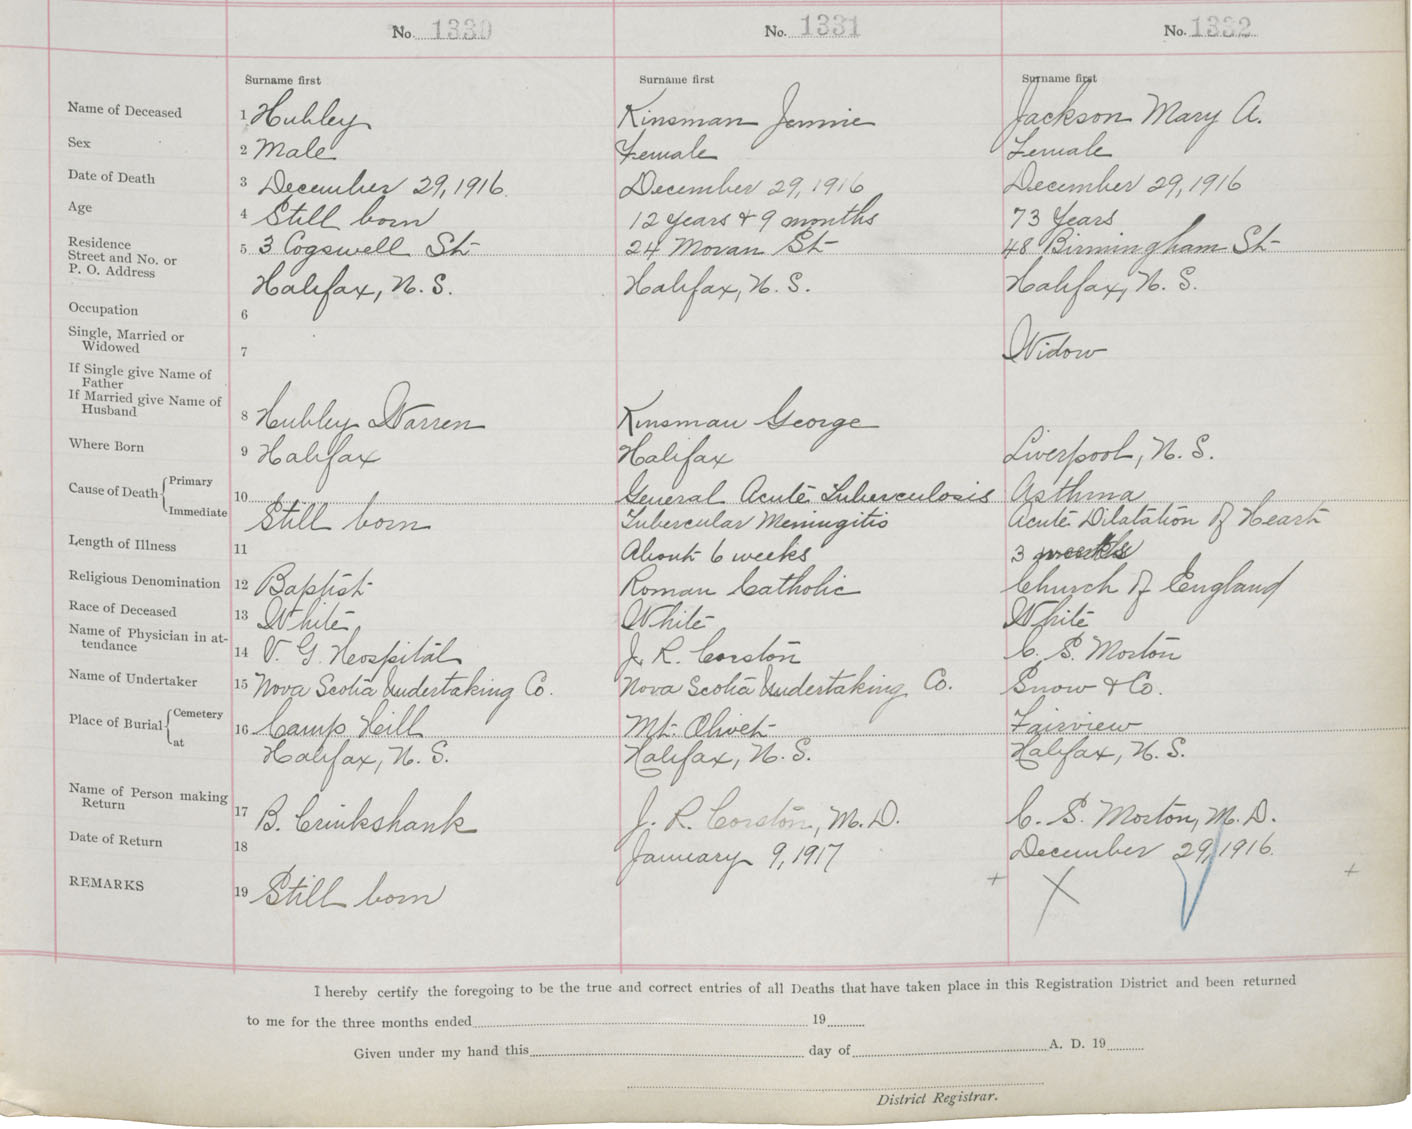 No. 1330 No. 1331 No. 1332
Surname first Surname first Surname first
Name of Deceased 1 Hubley Kinsman Jennie Jackson Mary A.
Sex 2 Male Female Female
Date of Death 3 December 29, 1916 December 29, 1916 December 29, 1916
Age 4 Still born 12 years & 9 months 73 Years
Residence
Street and No. or 5 3 Cogswell St 24 Moran St 48 Birmingham St
P. O. Address Halifax, N. S. Halifax, N. S. Halifax, N. S.
Occupation 6
Single, Married or
Widowed 7 Widow
If Single give Name of
Father
If Married give Name of
Husband 8 Hubley Warren Kinsman George
Where Born 9 Halifax Halifax Liverpool, N. S.
Cause of Death Primary 10 General Acute Tuberculosis Asthma
Immediate Still born Tubercular Meningitis Acute Dilatation of Heart
Length of Illness 11 About 6 weeks 3 weeks
Religious Denomination 12 Baptist Roman Catholic Church of England
Race of Deceased 13 White White White
Name of Physician in at-
tendance 14 V. G. Hospital J. R. Corston C. S. Morton
Name of Undertaker 15 Nova Scotia Undertaking Co. Nova Scotia Undertaking Co. Snow & Co.
Place of Burial Cemetery 16 Camp Hill Mt. Olivet Fairview
at Halifax, N. S. Halifax, N. S. Halifax, N. S.
Name of Person making
Return 17 B. Cruikshank J. R. Corston, M. D. C. S. Morton, M. D.
Date of Return 18 January 9, 1917 December 29, 1916.
REMARKS 19 Still born
I hereby certify the foregoing to be the true and correct entries of all Deaths that have taken place in this Registration District and been returned
to me for the three months ended 19
Given under my hand this day of A. D. 19
District Registrar.